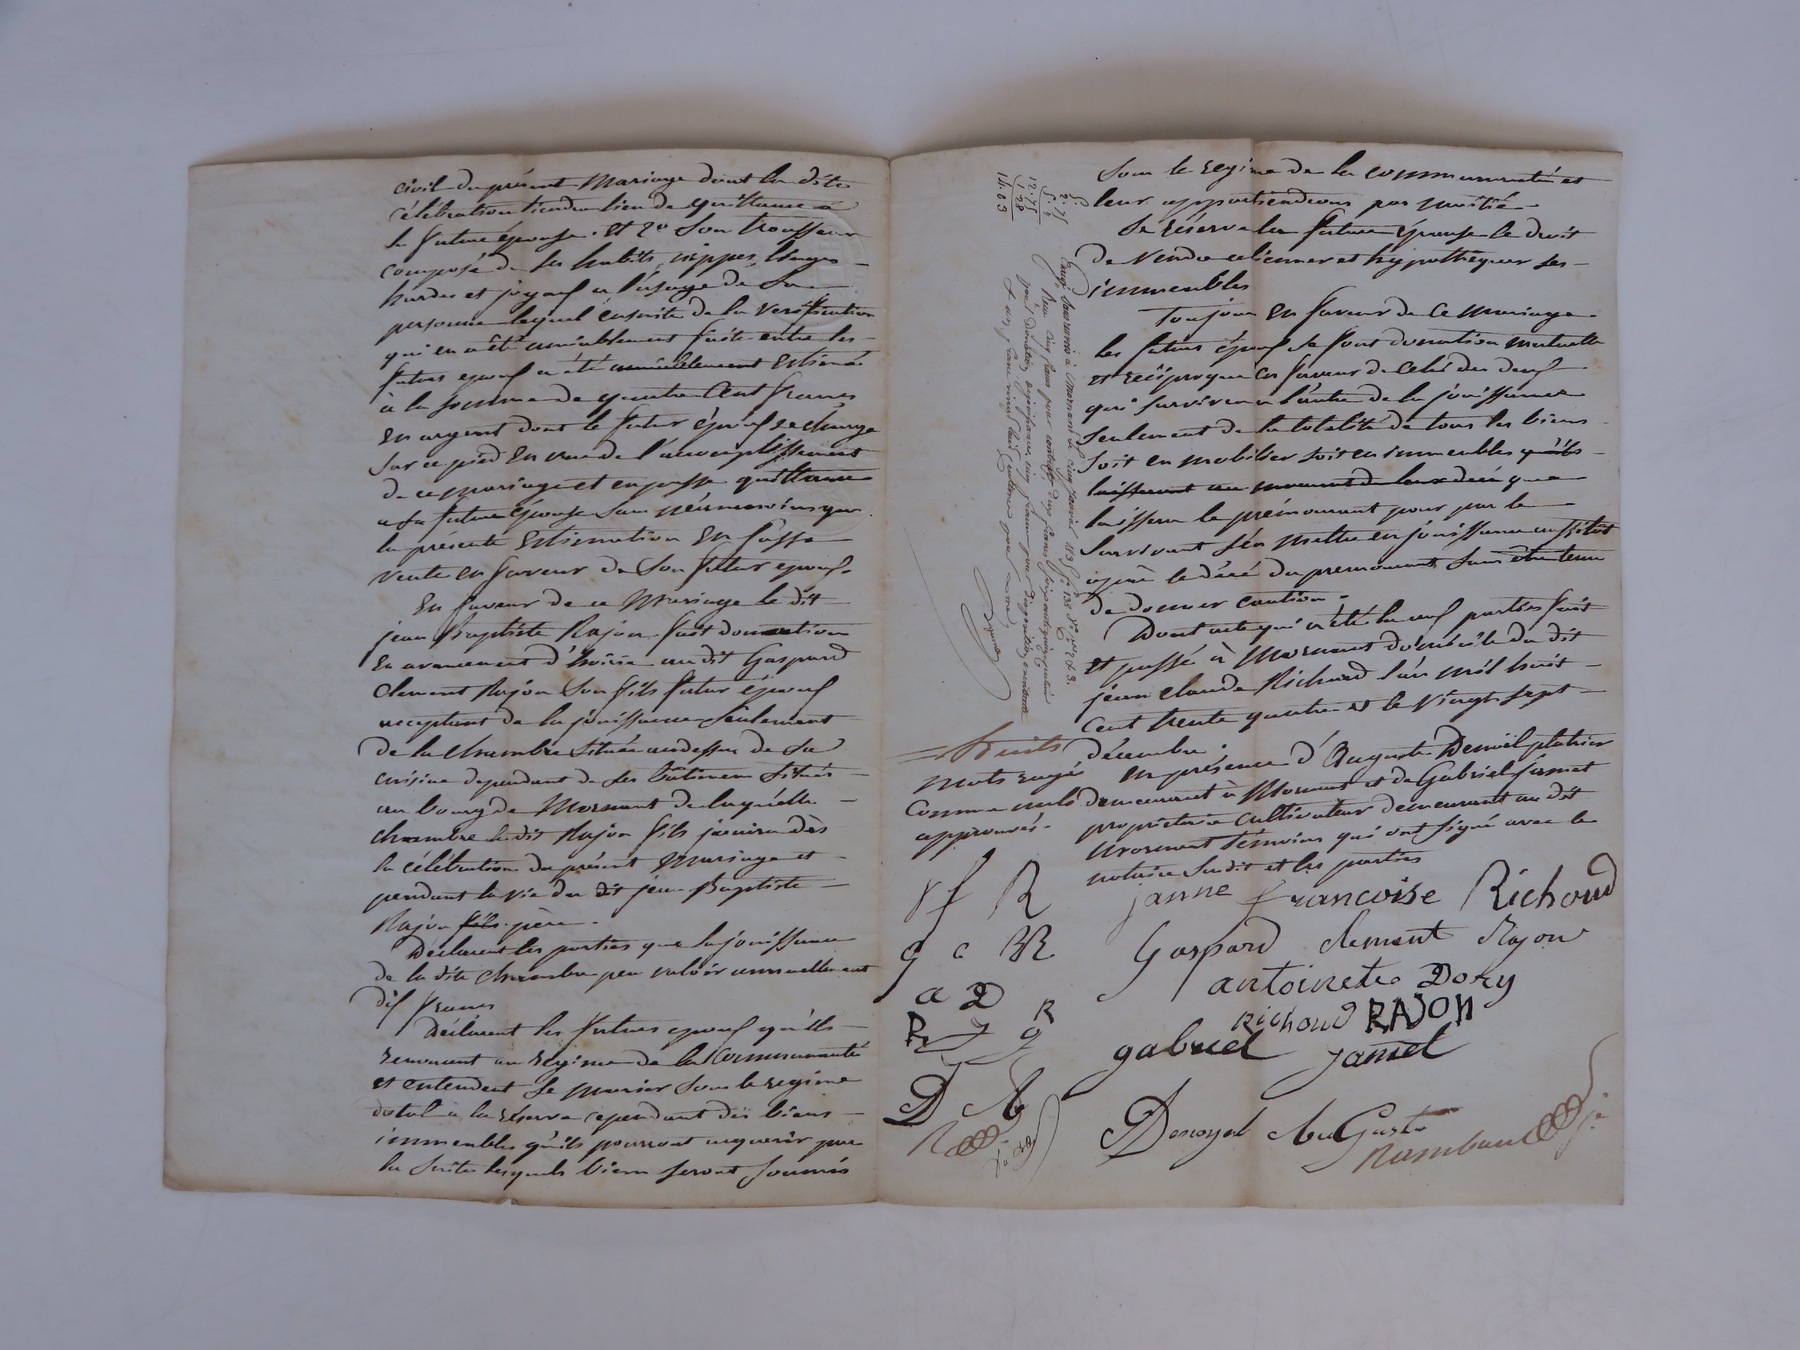 civil du présent Mariage dont la dite
célébration tiendra lieu de quittance a
la future épouse. et 2° Son trousseau
composé de ses habits, nippes, linges
hardes et joyaux a l'usage de Sa
personne lequel ensuite de la vérification
qui en a été amiablement faite entre les
futurs epoux a été amiablement Estimé
à la somme de quatre Cent francs
En argent dont le futur époux se charge
Sur ce pied En vue de l'accomplissement
de ce mariage et en passe quittance
a sa future épouse Sans néanmoins que
la présente Estimation En fasse
vente en faveur de Son futur epoux.
En faveur de ce Mariage le dit
jean Baptiste Rajon fait donation
En avancement d'hoirie au dit Gaspard
Clement Rajon Son fils futur époux
acceptant de la jouissance Seulement
De la Chambre Située audessus de Sa
cuisine dependant de Ses bâtimens Situés
au bourg de Mornant de laquelle
chambre le dit Rajon fils jouira dès
la célébration du présent Mariage et
pendant la vie du dit jean Baptiste
Rajon fils père.
Déclarent les parties que la jouissance
de la dite Chambre peu valoir annuellement
dix francs
Déclarent les futurs epoux qu'ils
renoncent au Régime de la Communauté
et entendent Se marier Sous le regime
dotal a la réserve cependant des biens
immeubles qu'ils pourront acquerir par
la Suite lesquels biens Seront Soumis
Sous le regime de la communauté et
leur appartiendrons par moitié
Se réserve la future épouse le droit
de Vendre aliener et hypothéquer ses
immeubles
Toujours En faveur de Ce mariage
les futurs époux Se font donation mutuelle
et réciproque en faveur de Celui des deux
qui Survivra a l'autre de la jouissance
Seulement de la totalité de tous les biens
Soit en mobilier soit en immeubles qu'ils
laisseront au moment de leur décès que
laissera le prémourant pour par le
Survivant S'en mettre en jouissance aussitôt
après le décé du premourant Sans être tenu
de donner caution.
Dont acte qui a été lu aux parties fait
et passé à Mornant domicile du dit
jean Claude Richoud l'an mil huit
Cent trente quatre et le Vingt Sept
décembre.
En présence d'Auguste Denoiel platrier
demeurant à Mornant et de Gabriel Jamet
proprietaire Cultivateur demeurant au dit
Mornant témoins qui ont signé avec le
notaire Susdit et les parties
= Huit
mots rayés
comme nuls
approuvés.
2.75
12.75
1.28
14.03
Enregistré à Mornant le cinq janvier 1835
Reçu cinq francs pour contrat
j f R
g c R
a D
R
g
D A
janne françoise Richoud
Gaspard clement Rajon
antoinete Dory
Richoud RAJON
gabriel jamet
Denoyel AuGuste
Rambaud